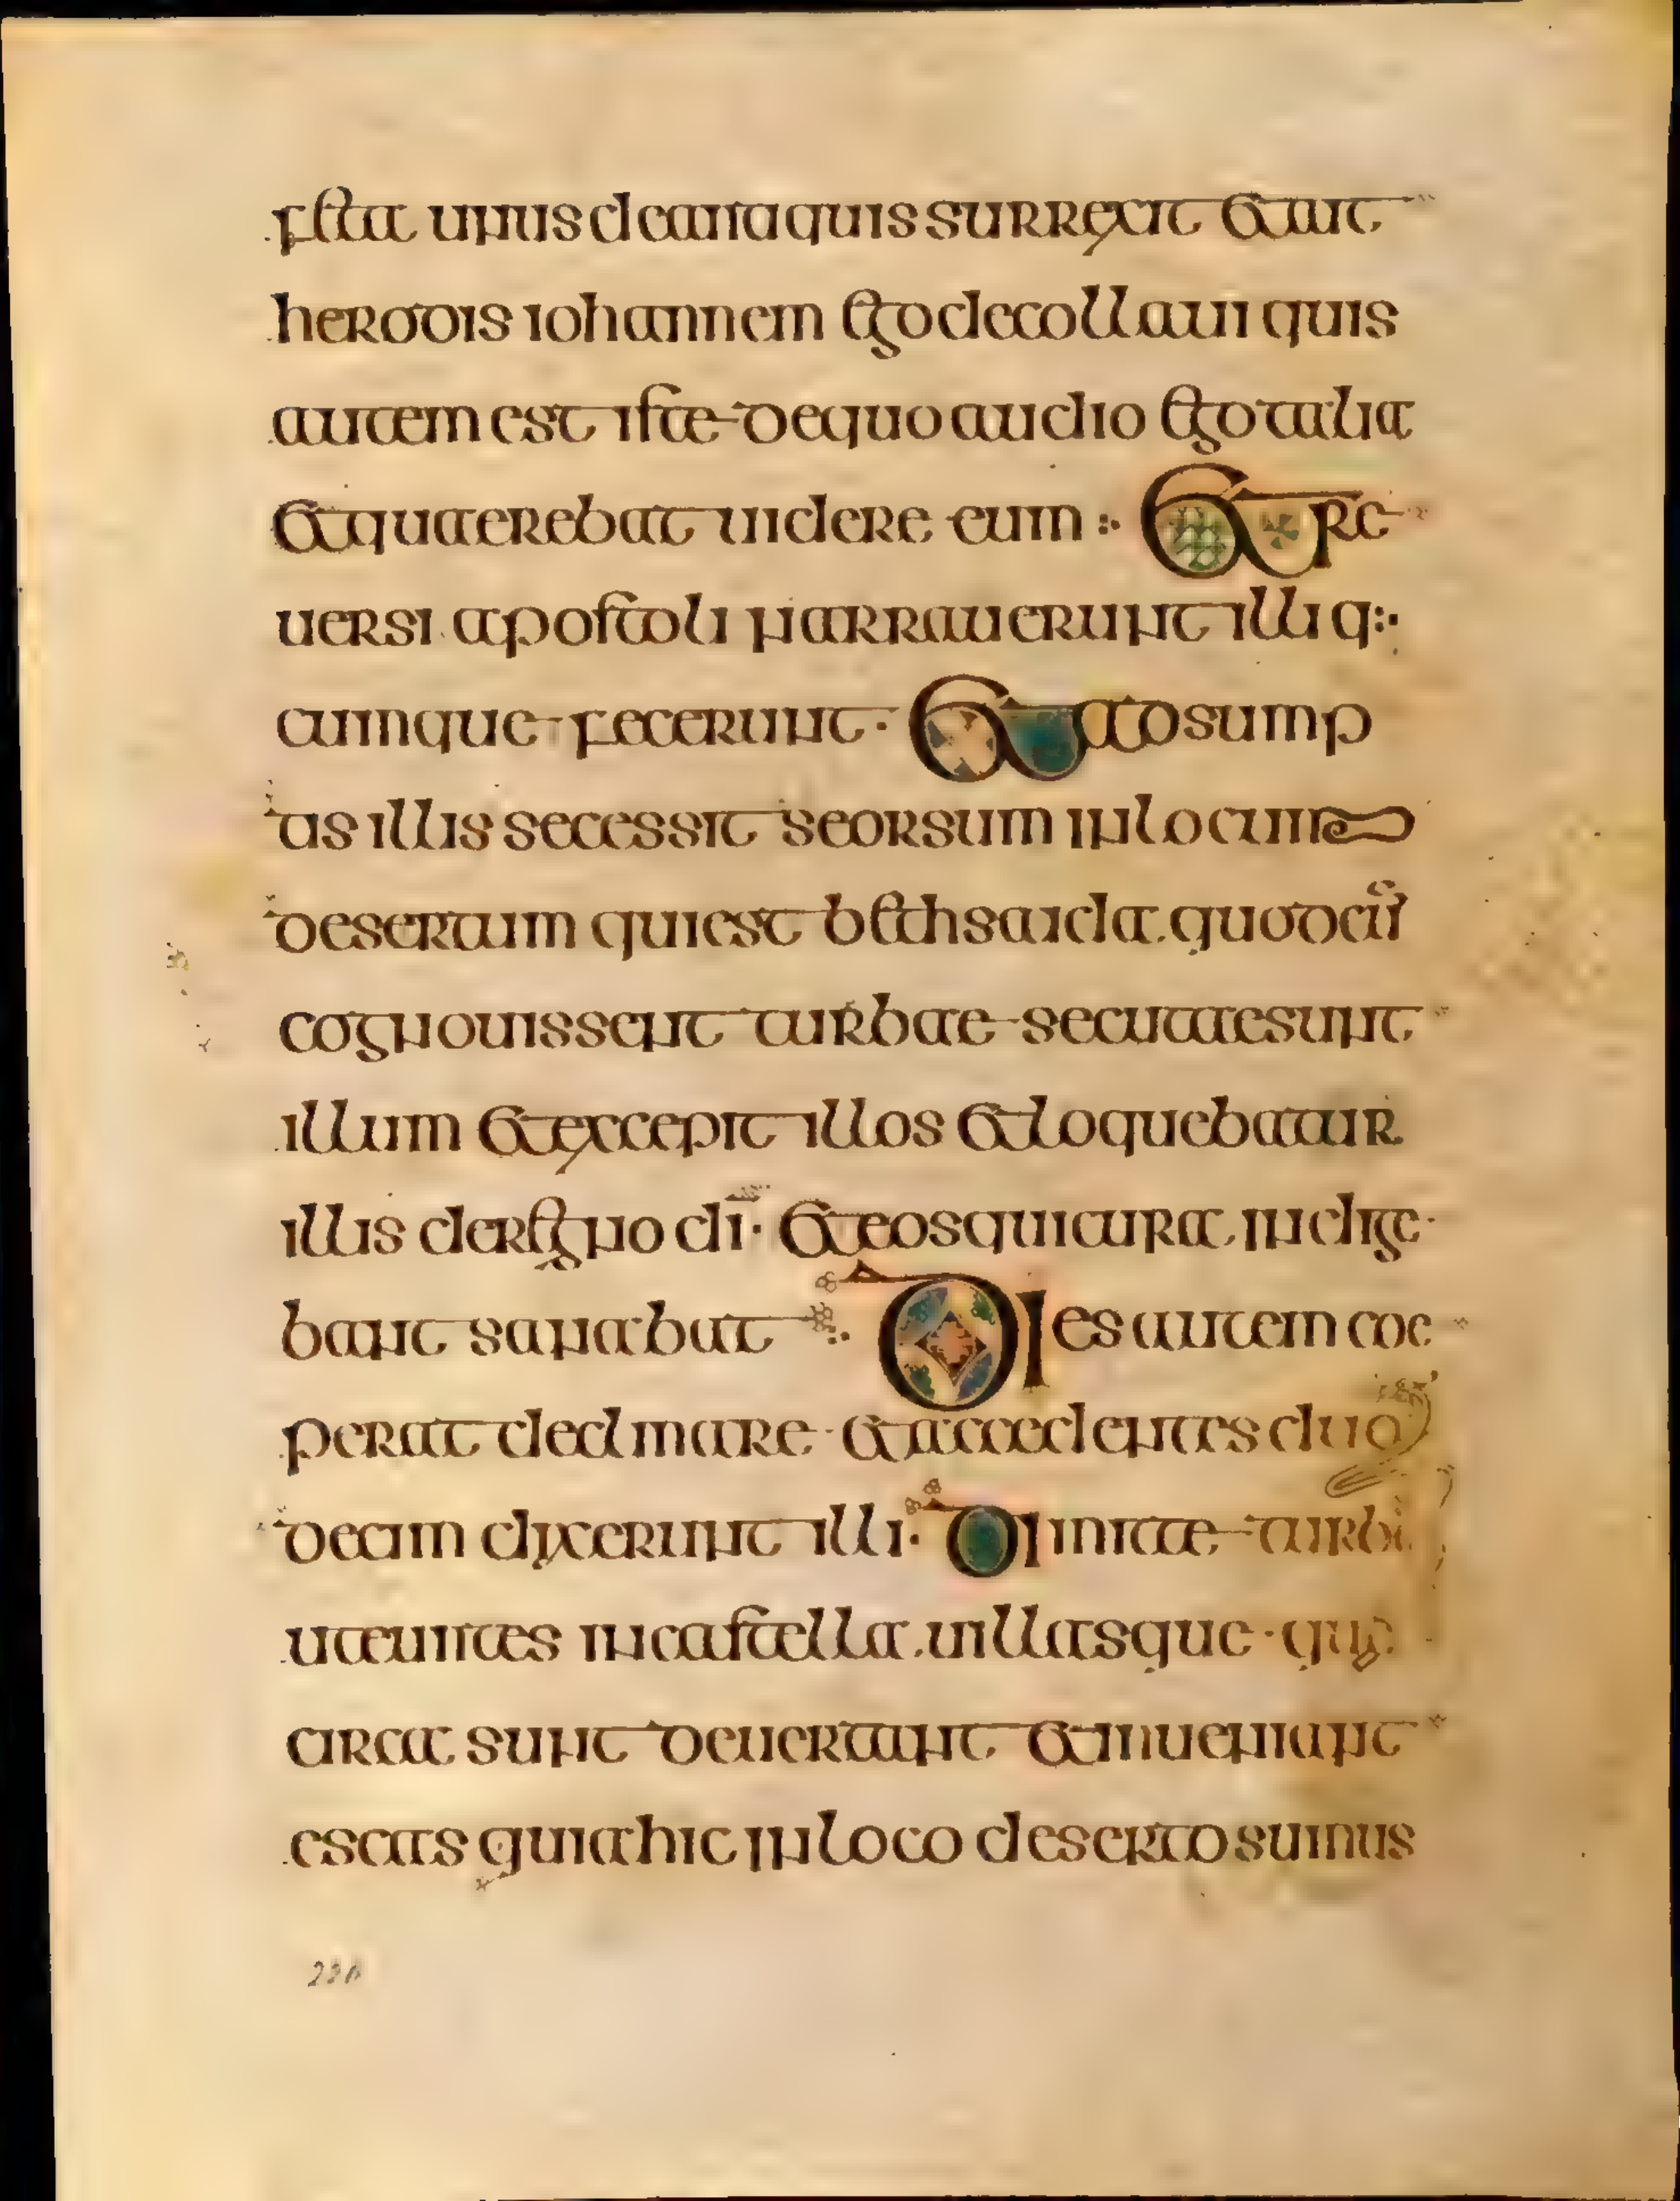 feta unus de antiquis surrexit et ait
herodis iohannem ego decollaui quis
autem est iste de quo audio ego talia
et quaerebat uidere eum Et re
uersi apostoli narrauerunt illi q:
cumque fecerunt · Et adsump
tis illis secessit seorsum in locum
desertum qui est bethsaida · quod cū
cognouissent turbae secutae sunt
illum et excepit illos et loquebatur
illis de regno dī · et eos qui cura indige
bant sanabat Dies autem coe
perat declinare · et accedentes duo
decim dixerunt illi · Dimitte
ut euntes in castella uillasque · que
circa sunt deuertant et inueniant
escas quia hic in loco deserto sumus